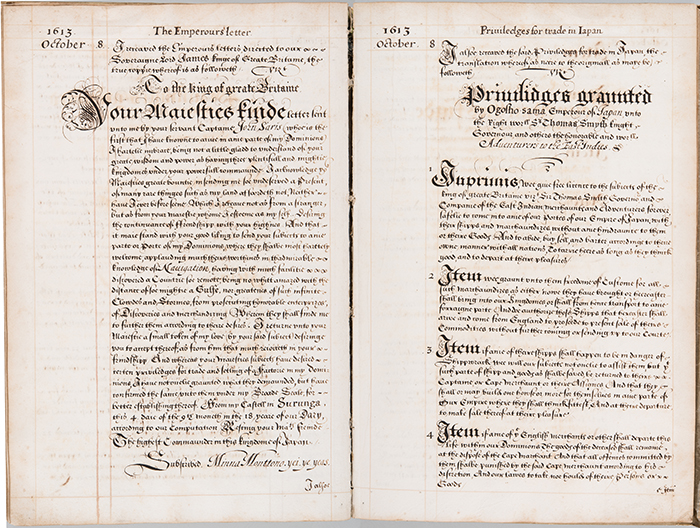 1613
October 8
The Emperours letter
I receaved the Emperours letters directed to our
Soveraigne Lord James kinge of Great Britaine, the
true coppie whereof is as followeth
To the king of greate Britaine
Your Maiesties kinde letter sent
vnto me by your servant Captaine John Saris, who is the
first that I have knowne to arive in anie parte of my Dominions
I hartelie imbrace, being not a little glad to vnderstand of your
greate wisdom and power as having three plentifull and mightie
kingdomes vnder your powerfull commande. I acknowledg yor
Maiesties greate bountie in sending me soe vndeserved a Present
of many rare thinges such as my land affordeth not, Neither
have I ever before seene. Which I receave not as from a stranger,
but as from your maiestie whome I esteeme as my self. Desiring
the contynuance of frendshipp with your highnes. And that
it maie stand with your good liking to send your subiects to anie
parte or Porte of my Dominions, where they shalbe most hartely
welcome, applauding much there worthines in th admirable
knowledge of Navigation, having with much facilitie
discovered a Countrie soe remote, being no whit amazed with the
distance of soe mightie a Gulfe, nor greatenes of such infinite
Clowdes and Stormes, from prosecuting honorable enterprizes,
of Discoveries and merchandizing. Wherein they shall finde me
to further them according to there desires. I returne vnto your
Maiestie a small token of my love (by your said subiect) desiring
you to accept thereof, as from him that much reioyceth in your
frindshipp. And whereas your Maiesties subiects have desired
certen priviledges for trade and setling of a Factorie in my Domi-
nions, I have not onelie graunted what they demaunded, but have
confirmed the same vnto them vnder my Broade Seale for
better establishing thereof. From my Castell in Surunga
this 4 daie of the 9th month in the 18 yeare of our Dary,
according to our Computation. Resting your Mats frende
The highest Commaunder in this kingdome of Japan.
Subscribed. Minna Monttono. yei. ye. yeas.
I alsoe
1613
October 8
Priviledges for trade in Iapan
I alsoe receaved the said Priviledges for trade in Japan, the
translation whereof, as nere to the originall as maye be,
followeth
Priuilidges graunted
by Ogosho sama Emperour of Japan vnto
the Right worll Sr Thomas Smyth knight
Governour and others the honorable and worll
Adventurers to the East Indies
1
Inprimis, wee give free licence to the subiects of the
king of greate Britaine viz Sir Thomas Smith Governor and
Companie of the East Indian Merchaunts and Adventurers forever
safelie to come into anie of our Portes of our Empire of Japan, with
their shipps and marchandizes without anie hindraunce to them
or there Goods. And to abide, buy, sell and barter according to there
owne manner with all nations. To tarrie here as long as they thinck
good and to depart at there pleasures
2
Item wee graunt vnto them freedome of Custome for all
such marchaundizes as either nowe they have brought or hereafter
shall bring into our kingdomes or shall from hence transport to anie
forraigne parte. And doe authorize those Shipps that hereafter shall
arive and come from England to proceede to present sale of there
Commodities without further coming or sending vp to our Courte
3
Item, if anie of there shipps shall happen to be in danger of
Shippwrack, wee will our subiects not onelie to assist them but yt
such parte of shipp and goods as shalbe saved, be returned to there
Captaine or Cape Merchant or there Assignes. And that they
shall or may builde one howse or more for themselves in anie parte of
Our Empire where they shall thinck fittest, And at there departure
to make sale thereof at there pleasure
4
Item, if anie of ye English merchants or other shall departe this
life within our Dominions, The goods of the deceased shall remaine
at the dispose of the Cape Marchant. And that all offences comitted by
them shalbe punished by the said Cape merchant according to his
discretion, And our lawes to take not houlde of there Persons or
Goods
Item